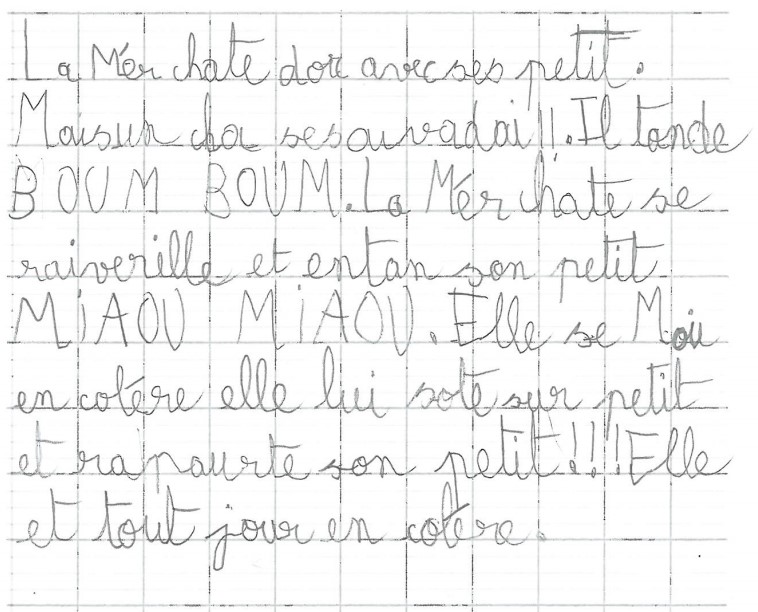 La Mér chate dort avec ses petit.
Maisun cha sesauvadai!!. Il tonde
BOUM BOUM. La Mér chate se
raiverille et entan son petit
MiAOU MiAOU. Elle se Mai
en colére elle lui sote sur petit
et rapaurte son petit!!! Elle
et tout jour en colére.